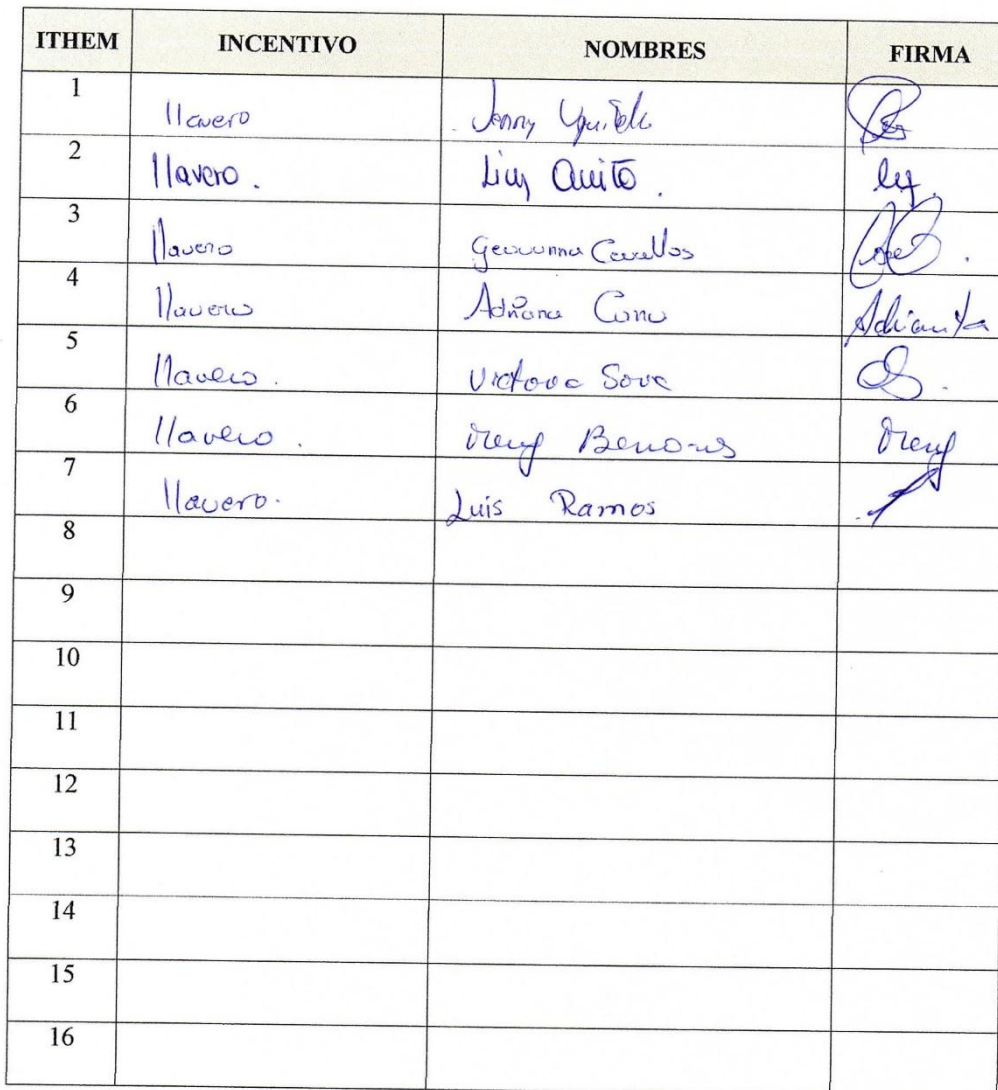 ITHEM INCENTIVO NOMBRES FIRMA
1 llavero Jenny
2 llavero. Luz Quito.
3 llavero Geovanna Cevallos
4 llavero Adriana Cano Adrianita
5 llavero. Victoria
6 llavero.
7 llavero. Luis Ramos
8
9
10
11
12
13
14
15
16